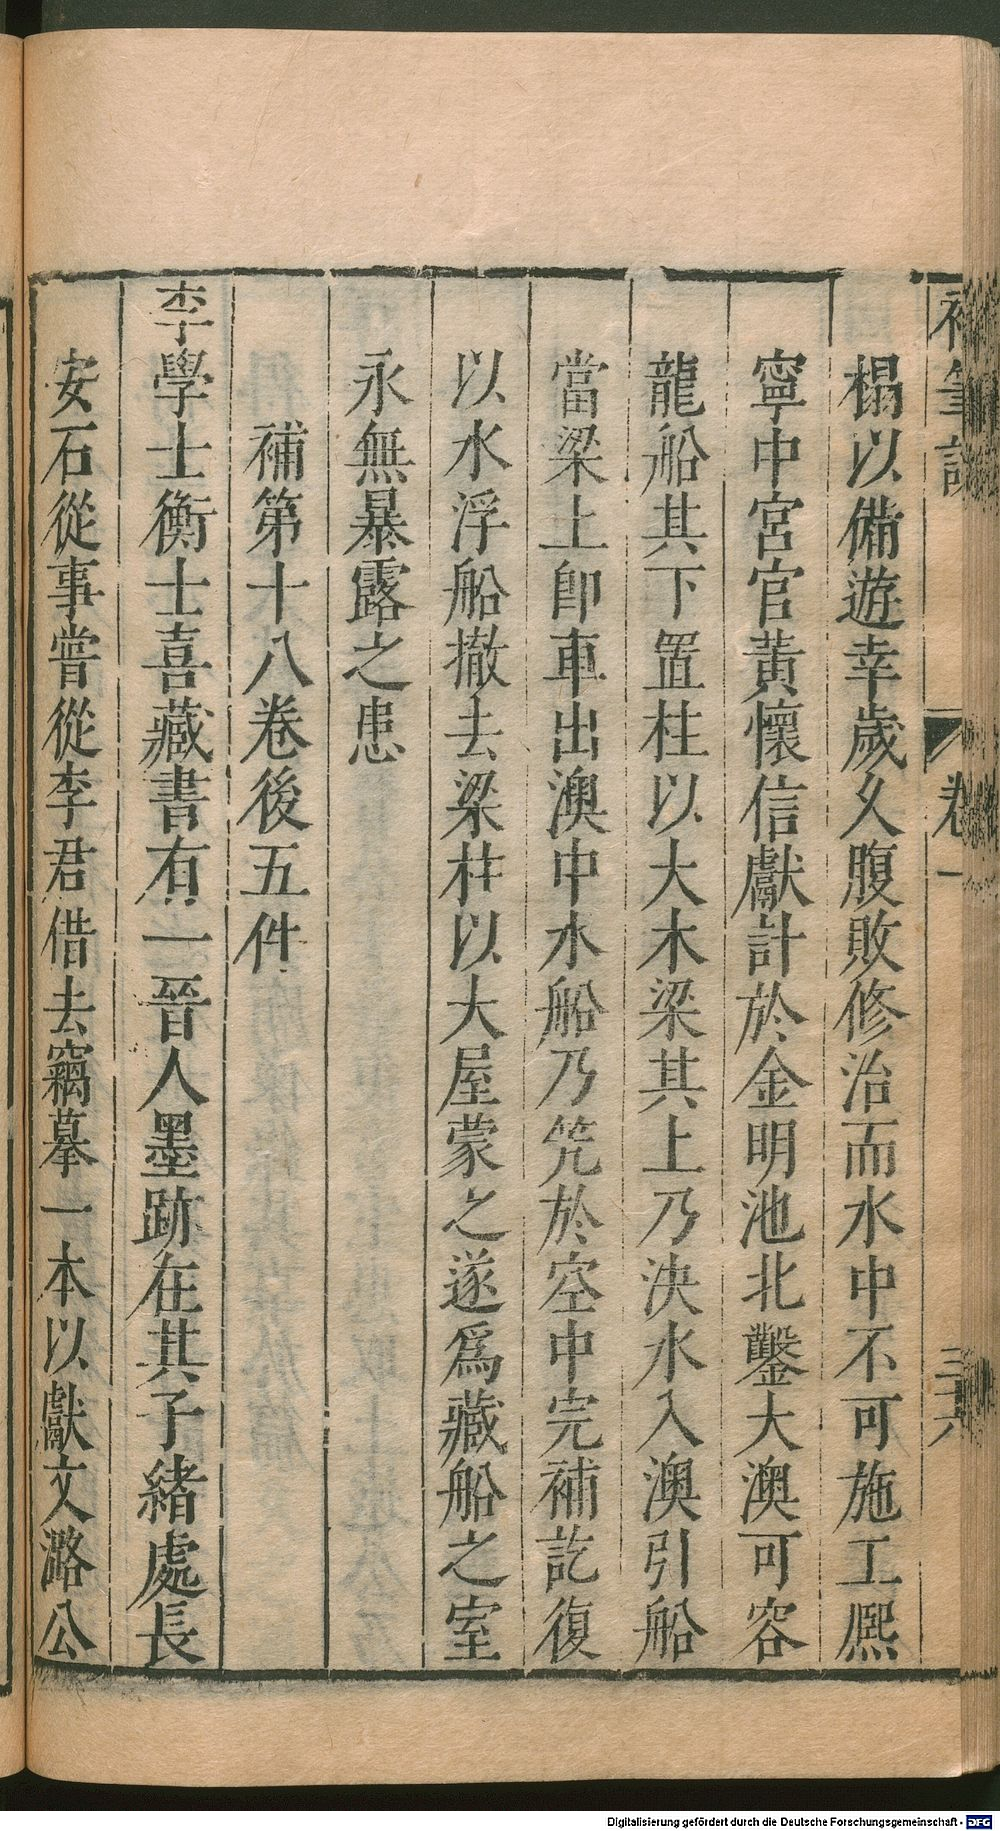 榻以備遊幸歲久腹敗修治而水中不可施工熈
寧中宮官黃懷信獻計於金明池北鑿大澳可容
龍船其下置柱以大木梁其上乃決水入澳引船
當梁上卽車出澳中水船乃笐於空中完補訖復
以水浮船撤去梁柱以大屋蒙之遂爲藏船之室
永無暴露之患
補第十八卷後五件
李學士衡士喜藏書有一晉人墨跡在其子緒處長
安石從事嘗從李君借去竊摹一本以獻文潞公
Digitalisierung gefördert durch die Deutsche Forschungsgemeinschaft - DFG